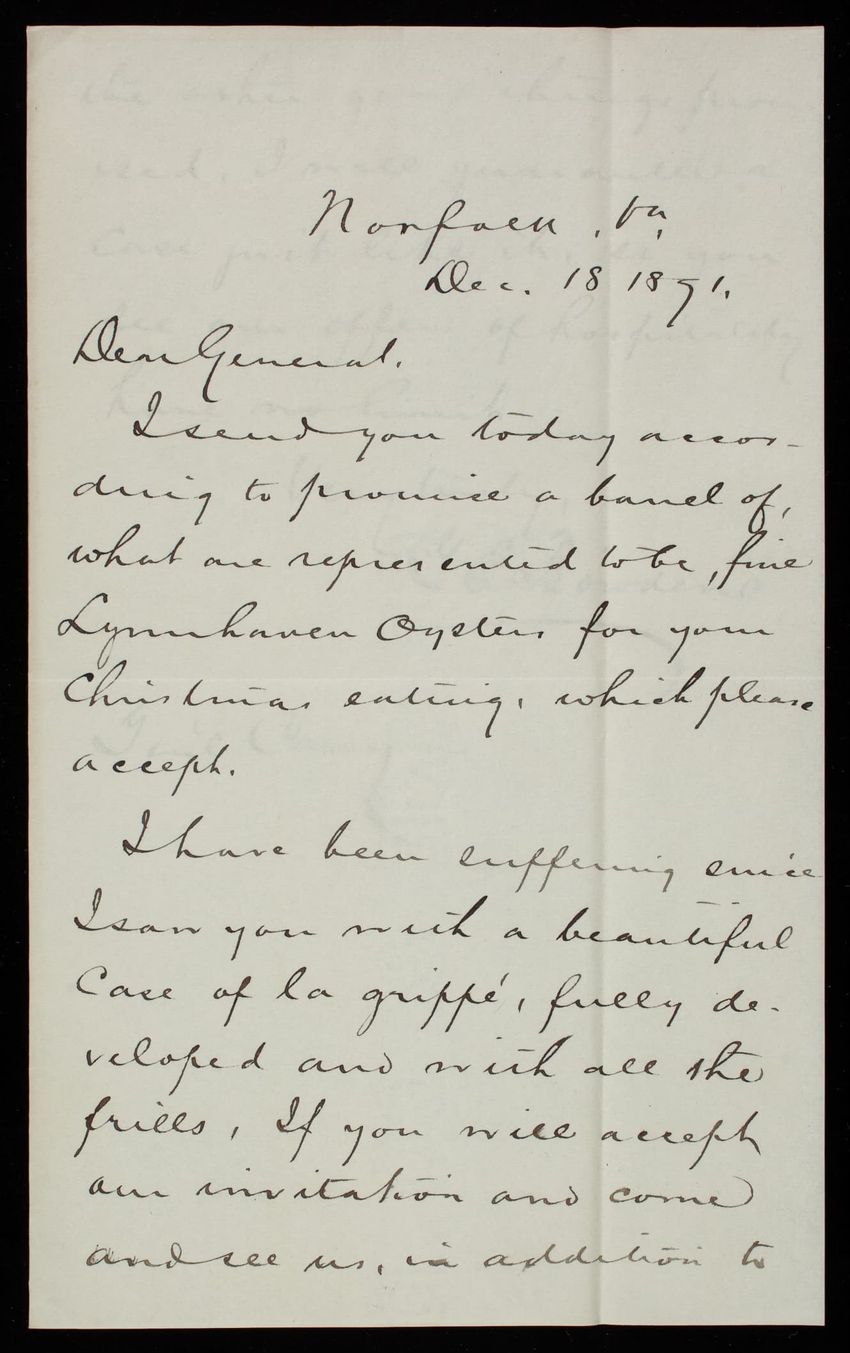 Norfolk, Va,
Dec. 18 1891.
Dear General.
I send you today accor-
ding to promise a barrel of,
what are represented to be, fine
Lynnhaven Oysters for your
Christmas eating, which please
accept.
I have been suffering since
I saw you with a beautiful
Case of la grippé, fully de-
veloped and with all the
frills, If you will accept
our invitation and come
and see us, in addition to